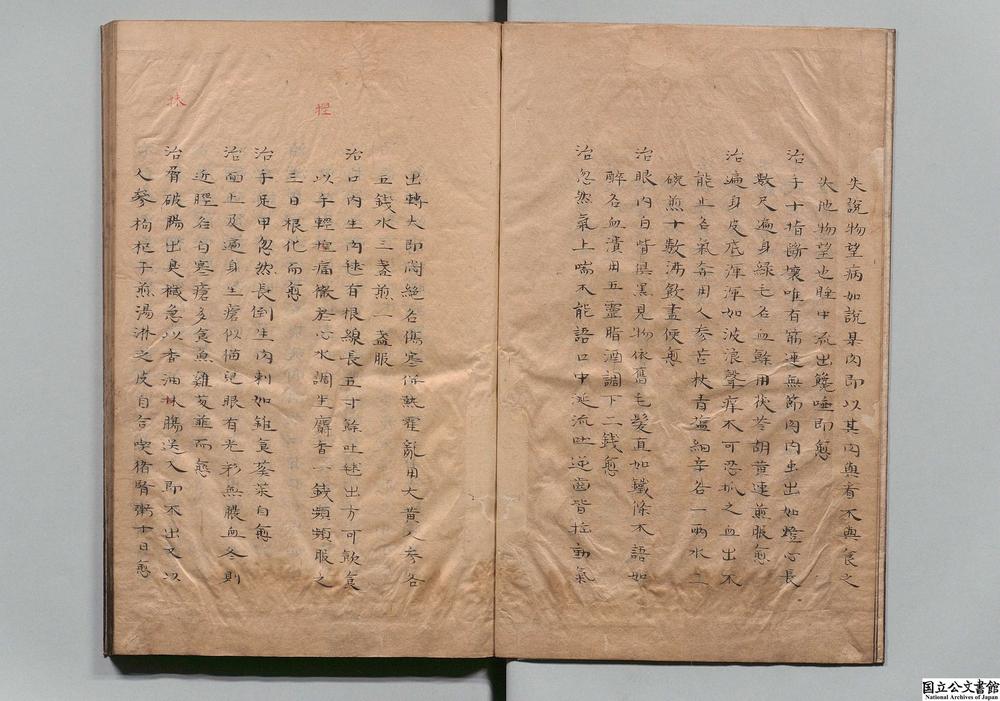 失說物望病如說某肉即以某肉與看不與食之
失他物望也睡中流出饞唾即愈
治手十指斷壞唯有筋連無節肉內虫出如燈心長
數尺遍身綠毛名血餘用茯苓胡黃連煎服愈
治遍身皮底渾渾如波浪聲痒不可忍抓之血出不
能止名氣奔用人參苦杖青塩細辛各一兩水二
碗煎十數沸飲盡便愈
治眼內白眥俱黑見物依舊毛髮直如鐵條不語如
醉名血潰用五靈脂酒調下二錢愈
治忽然氣上喘不能語口中延流吐逆齒皆揺動氣
出轉大即悶絕名傷寒併熱霍亂用大黃人參各
五錢水三盞煎一盞服
治口內生肉毬有根線長五寸餘吐毬出方可飲食
以手輕揑痛徹於心水調生麝香一錢頻頻服之
三日根化而愈
治手足甲忽然長倒生肉刺如錐食葵菜自愈
治面上及遍身生瘡似猫兒眼有光彩無膿血冬則
近脛名曰寒瘡多食魚雞芰韮而愈
治脅破腸出臭穢急以香油抹腸送入即不出又以
人參枸杞子煎湯淋之皮自合喫猪腎粥十日愈
揑
抹
国立公文書館
National Archives of Japan